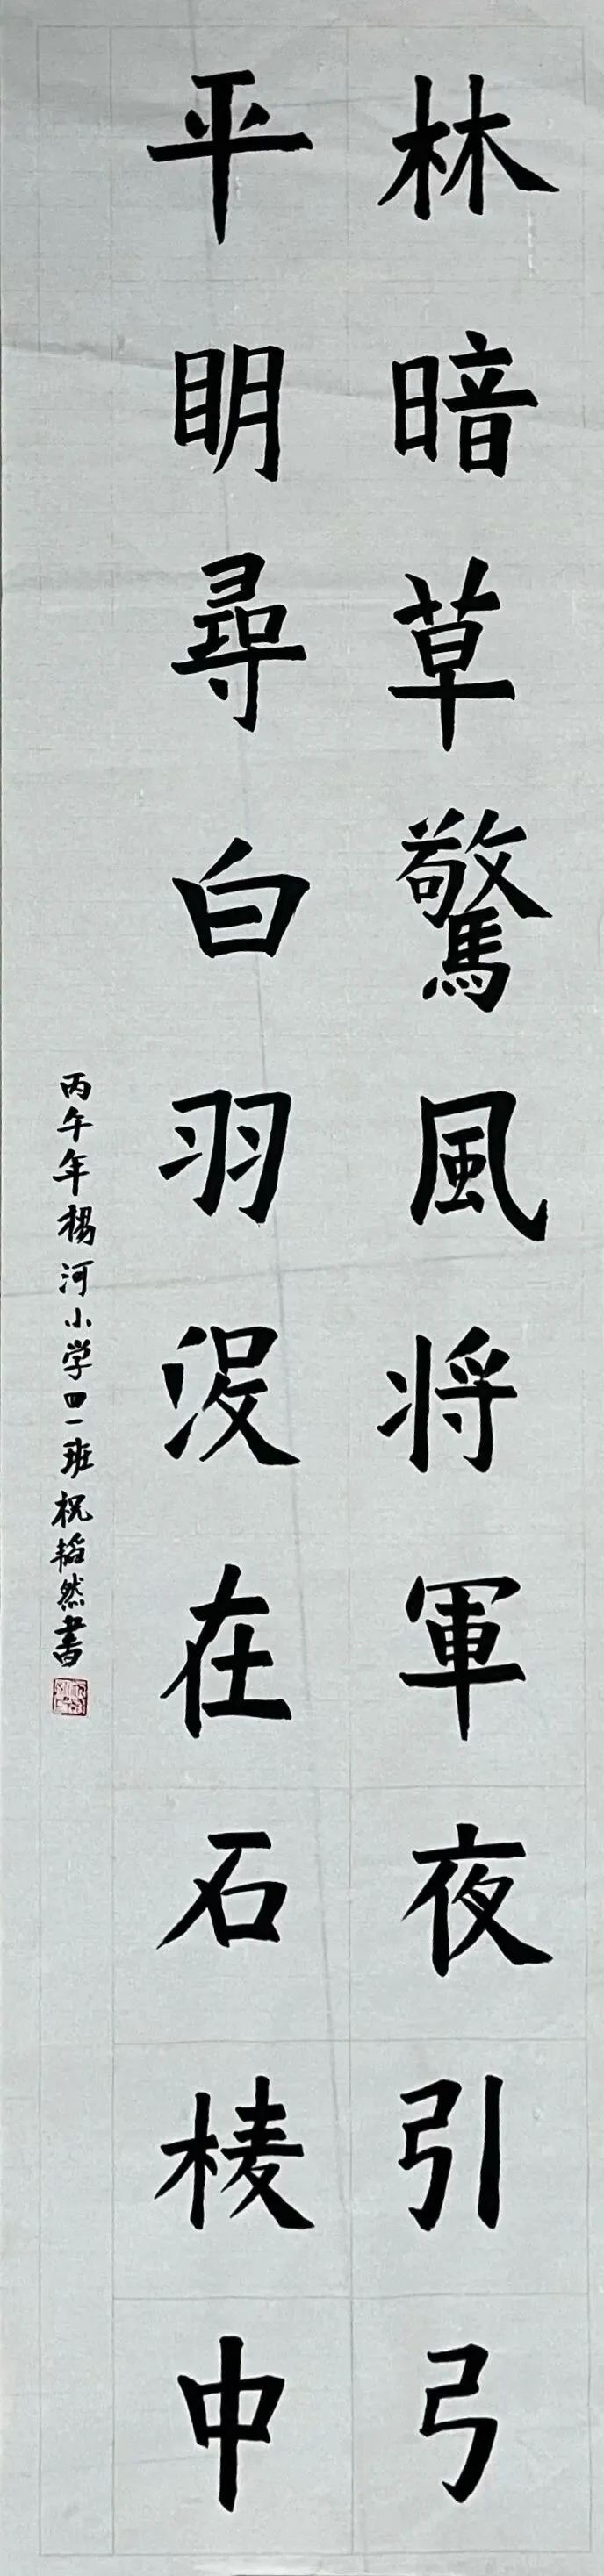 林暗草驚風将軍夜引弓
平明尋白羽沒在石棱中
丙午年杨河小学四一班祝韬然書